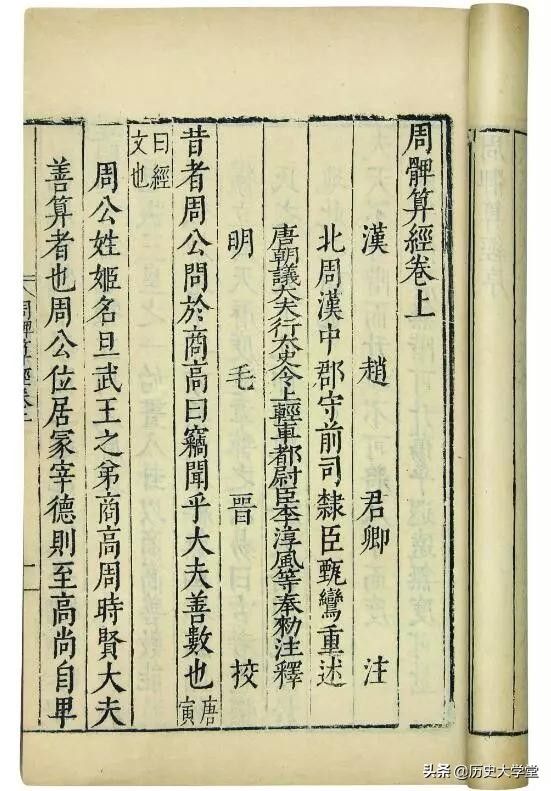 周髀算經卷上
漢 趙 君卿 注
北周漢中郡守前司隸臣甄鸞重述
唐朝議大夫行太史令上輕車都尉臣李淳風等奉勑注釋
明 毛 晉 挍
昔者周公問於商高曰竊聞乎大夫善數也唐寅
曰經
文也
周公姓姬名旦武王之弟商高周時賢大夫
善算者也周公位居冢宰德則至高尚自卑
周髀算經卷
一
头条 @历史大学堂